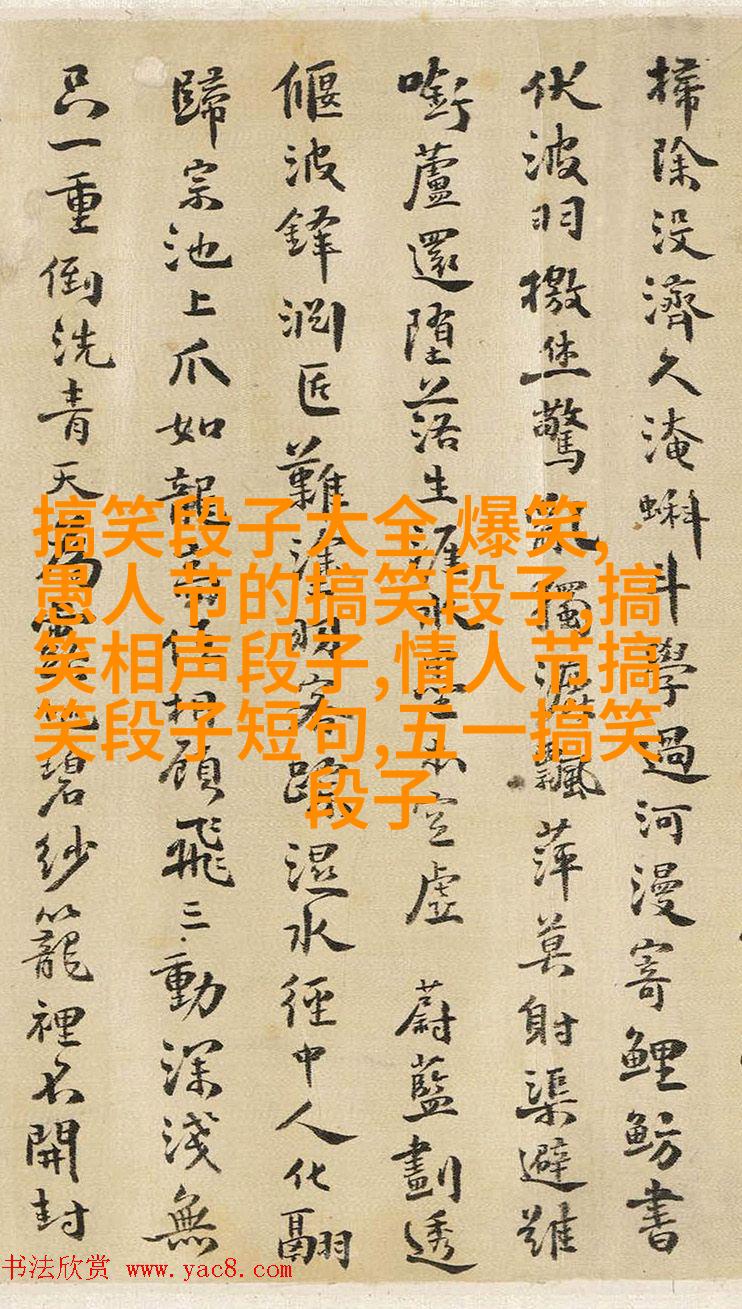 掃除没濟久淹蝌斗學過河漫寄鯉魴書
伏波羽檄驚獨漉飄萍莫射渠避難
啣蘆還墮落生涯水本空虛 蔚藍劃透
偃波鋒淵匠難客蹤濕水徑中人化翮
歸宗池上爪如龍任相顧飛三動深淺無
只一重倒洗青天碧紗籠裡不開封
搞笑段子大全 爆笑,
愚人节的搞笑段子,搞
笑相声段子,情人节搞
笑段子短句,五一搞笑
段子
书法欣赏 www.yac8.com